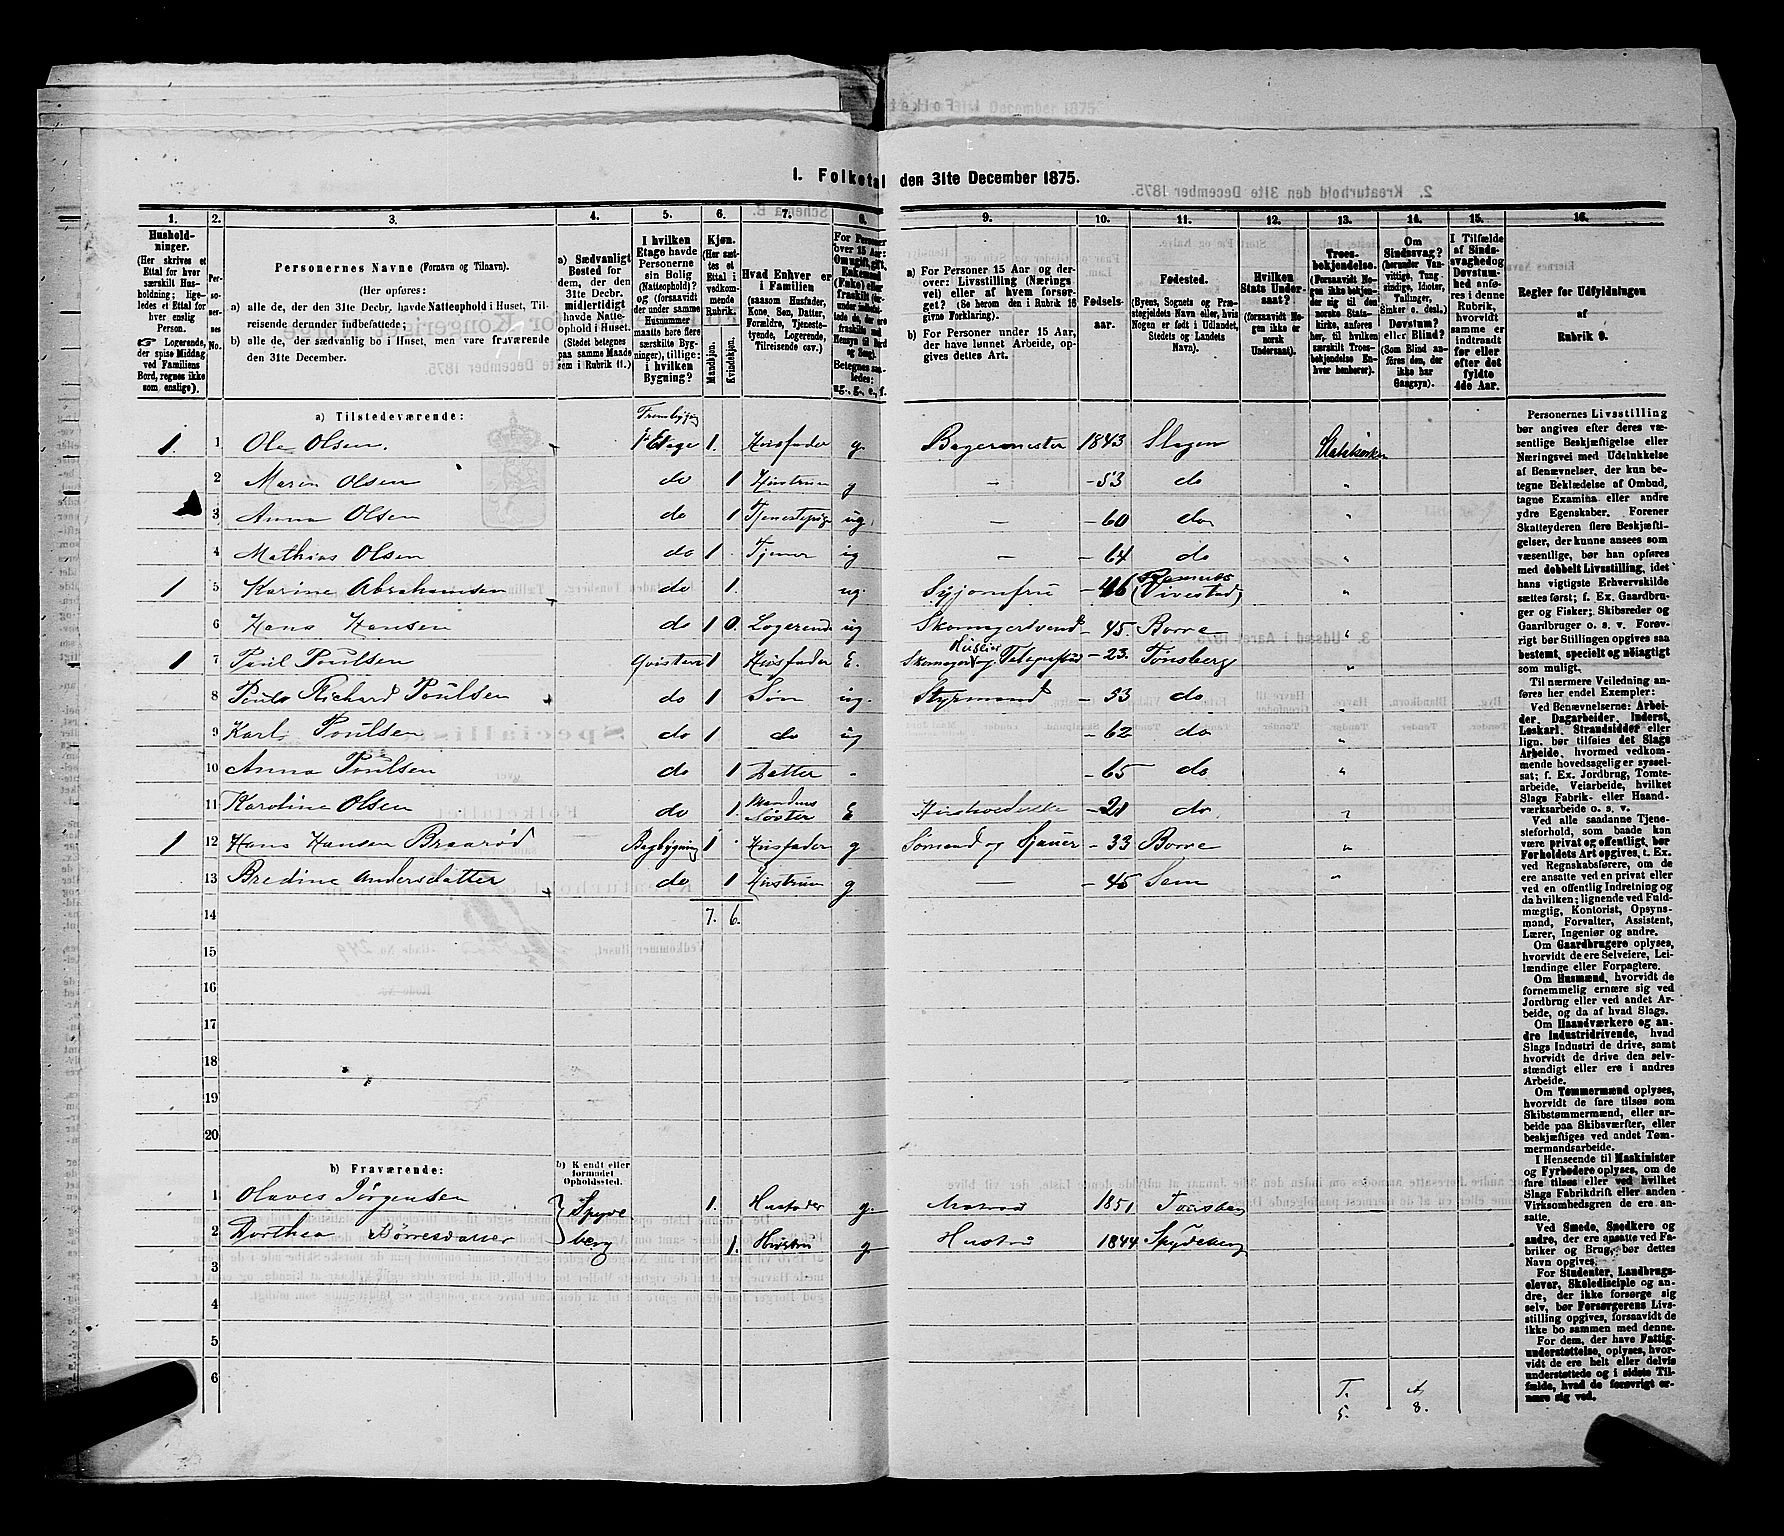 I. Folketal den 31te December 1875.
1. 2. 3. 4. 5. 6. 7. 8. 9. 10. 11. 12. 13. 14. 15. 16.
Hushold-
ninger.
(Her skrives et
Ettal for hver
særskilt Hus-
holdning; lige-
ledes et Ettal for
hver enslig
Person.
Logerende,
der spise Middag
ved Familiens
Bord, regnes ikke
som enslige).
Personernes Navne (Fornavn og Tilnavn).
(Her opføres:
a) alle de, der den 31te Decbr. havde Natteophold i Huset, Til-
reisende derunder indbefattede;
b) alle de, der sædvanlig bo i Huset, men vare fraværende
den 31te December.
a) Sædvanligt
Bosted for
dem, der den
31te Decbr.
midlertidigt
havde Natte-
ophold i Huset.
(Stedet betegnes
paa samme Maade
som i Rubrik 11.)
I hvilken
Etage havde
Personerne
sin Bolig
(Natteophold)?
og (forsaavidt
der under samme
Husnummer
maatte bore flere
særskilte Byg-
ninger), tillige:
i hvilken
Bygning?
Kjøn.
(Her sæt-
tes et
Ettal i
vedkom-
mende
Rubrik.
Mandkjøn.
Kvindekjøn.
Hvad Enhver er
i Familien
(saasom Husfader,
Kone, Søn, Datter,
Forældre, Tjeneste-
tyende, Logerende,
Tilreisende osv.)
a) For Personer 15 Aar og der-
over: Livsstilling (Nærings-
vei) eller af hvem forsør-
get? (Se herom den i Rubrik 16
givne Forklaring).
b) For Personer under 15 Aar,
der have lønnet Arbeide, op-
gives dettes Art.
Fødsels-
aar.
Fødested.
(Byens, Sognets og Præ-
stegjeldets Navn eller, hvis
Nogen er født i Udlandet,
Stedets og Landets
Navn).
Hvilken
Stats Under-
saat?
(forsaavidt No-
gen ikke er
norsk
Undersaat).
Troes-
bekjendelse.
(Forsaavidt No-
gen ikke bekjen-
der sig til den
norske Stats-
kirke, anføres
her, til hvilken
særskilt Troes-
bekjendelse En-
hver henhører).
Om
Sindssvag?
(herunder Van-
vittige, Tung-
sindige, Idioter,
Tullinger,
Sinker o. desl.)
Døvstum?
eller Blind?
(Som Blind an-
føres den, der
ikke har
Gangsyn).
I Tilfælde
af Sinds-
svaghed og
Døvstum-
hed anfø-
res i denne
Rubrik,
hvorvidt
samme er
indtraadt
før eller
efter det
fyldte
4de Aar.
Regler for Udfyldningen
af
Rubrik 9.
a) Tilstedeværende:
1 1 Ole Olsen. 1 Etage 1. Husfader g. Bagermester 1843 Slagen Statskirken
2 Maren Olsen do 1 Hustru g - -53 do "
3 Anna Olsen do 1 Tjenestepige ug. - -60 do "
4 Mathias Olsen do 1 Tjener ug - -64 do "
1 5 Karine Abrahamsen do 1. ug. Syjomfru -46 Ramnes (Vivestad) "
6 Hans Hansen do 1 0. Logerende ug Skomagersvend -45. Borre "
1 7 Poul Poulsen Qvisten 1 Husfader E. Skomager og -23. Tønsberg "
8 Poul Richard Poulsen do 1 Søn ug. Styrmand -53 do "
9 Karl Poulsen do 1 do ug -62 do "
10 Anna Poulsen do 1 Datter - -65 do "
11 Karoline Olsen do 1. Mandens Søster E -21 do "
1 12 Hans Hansen Braarød Bagbygning 1 Husfader g Sømand og Sjauer -33 Borre "
13 Bredine Andersdatter do 1 Hustru g - -45 Sem "
14 7. 6.
15
16
17
18
19
20
b) Fraværende:
b) Kendt eller
formodet
Opholdssted.
1 Olaves Jørgensen Spyde 1. Husfader g. Matros 1851 Tønsberg
2 Dorthea Børresdatter berg 1. Hustru g Hustru 1844 Spydeberg
3
4
5
6
T. 5. 8.
Personernes Livsstilling
bør angives efter deres væ-
sentlige Beskjæftigelse eller
Næringsvei med Udelukkelse
af Benævnelser, der kun be-
tegne Beklædelse af Ombud,
tagne Examina eller andre
ydre Egenskaber. Forener
Skatteyderen flere Beskjæfti-
gelser, der kunne ansees som
væsentlige, bør han opføres
med dobbelt Livsstilling, idet
hans vigtigste Erhvervskilde
sættes først; f. Ex. Gaardbru-
ger og Fisker; Skibsreder og
Gaardbruger o. s. v. Forøv-
rigt bør Stillingen opgives saa
bestemt, specielt og nöiagtigt
som muligt.
Til nærmere Veiledning an-
føres her endel Exempler:
Ved Benævnelserne: Arbei-
der, Dagarbeider, Inderst,
Løskarl, Strandsidder eller
lign. bør tilføies det Slags
Arbeide, hvormed vedkom-
mende hovedsagelig er syssel-
sat; f. Ex. Jordbrug, Tomte-
arbeide, Veiarbeide, hvilket
Slags Fabrik- eller Haand-
værksarbeide o. s. v.
Ved alle saadanne Tjene-
steforhold, som baade kan
være privat og offentligt, bør
Forholdets Art opgives, t. Ex.
ved Regnskabsførere, om de
ere ansatte ved en privat eller
ved en offentlig Indretning og
da hvilken; lignende ved Fuld-
mægtig, Kontorist, Opsyns-
mand, Forvalter, Assistent,
Lærer, Ingeniør og andre.
Om Gaardbrugere oplyses,
hvorvidt de ere Selveiere, Lei-
lændinge eller Forpagtere.
Om Husmænd, hvorvidt de
fornemmelig ernære sig ved
Jordbrug eller ved andet Ar-
beide, og da af hvad Slags.
Om Haandværkere og an-
dre Industridrivende, hvad
Slags Industri de drive, samt
hvorvidt de drive den selv-
stændigt eller ere i andres
Arbeide.
Om Tømmermænd oplyses,
hvorvidt de fare tilsøs som
Skibstømmermænd, eller ar-
beide paa Skibsværfter, eller
beskjæftiges ved andet Tøm-
mermandsarbeide.
I Henseende til Maskinister
og Fyrbødere oplyses, om de
fare tilsøs eller ved hvilket
Slags Fabrikdrift eller anden
Virksomhedsgren de ere an-
satte.
Ved Smede, Snedkere og
andre, der ere ansatte ved Fa-
briker og Brug, bør dettes
Navn opgives.
For Studenter, Landbrugs-
elever, Skoledisciple og an-
dre, der ikke forsørge sig
selv, bør Forsørgerens Livs-
stilling opgives, forsaavidt de
ikke bo sammen med denne.
For dem, der have Fattig-
understøttelse, oplyses, hvor-
vidt de ere helt eller delvis
understøttede og i sidste Til-
fælde, hvad de forøvrigt er-
nære sig ved.